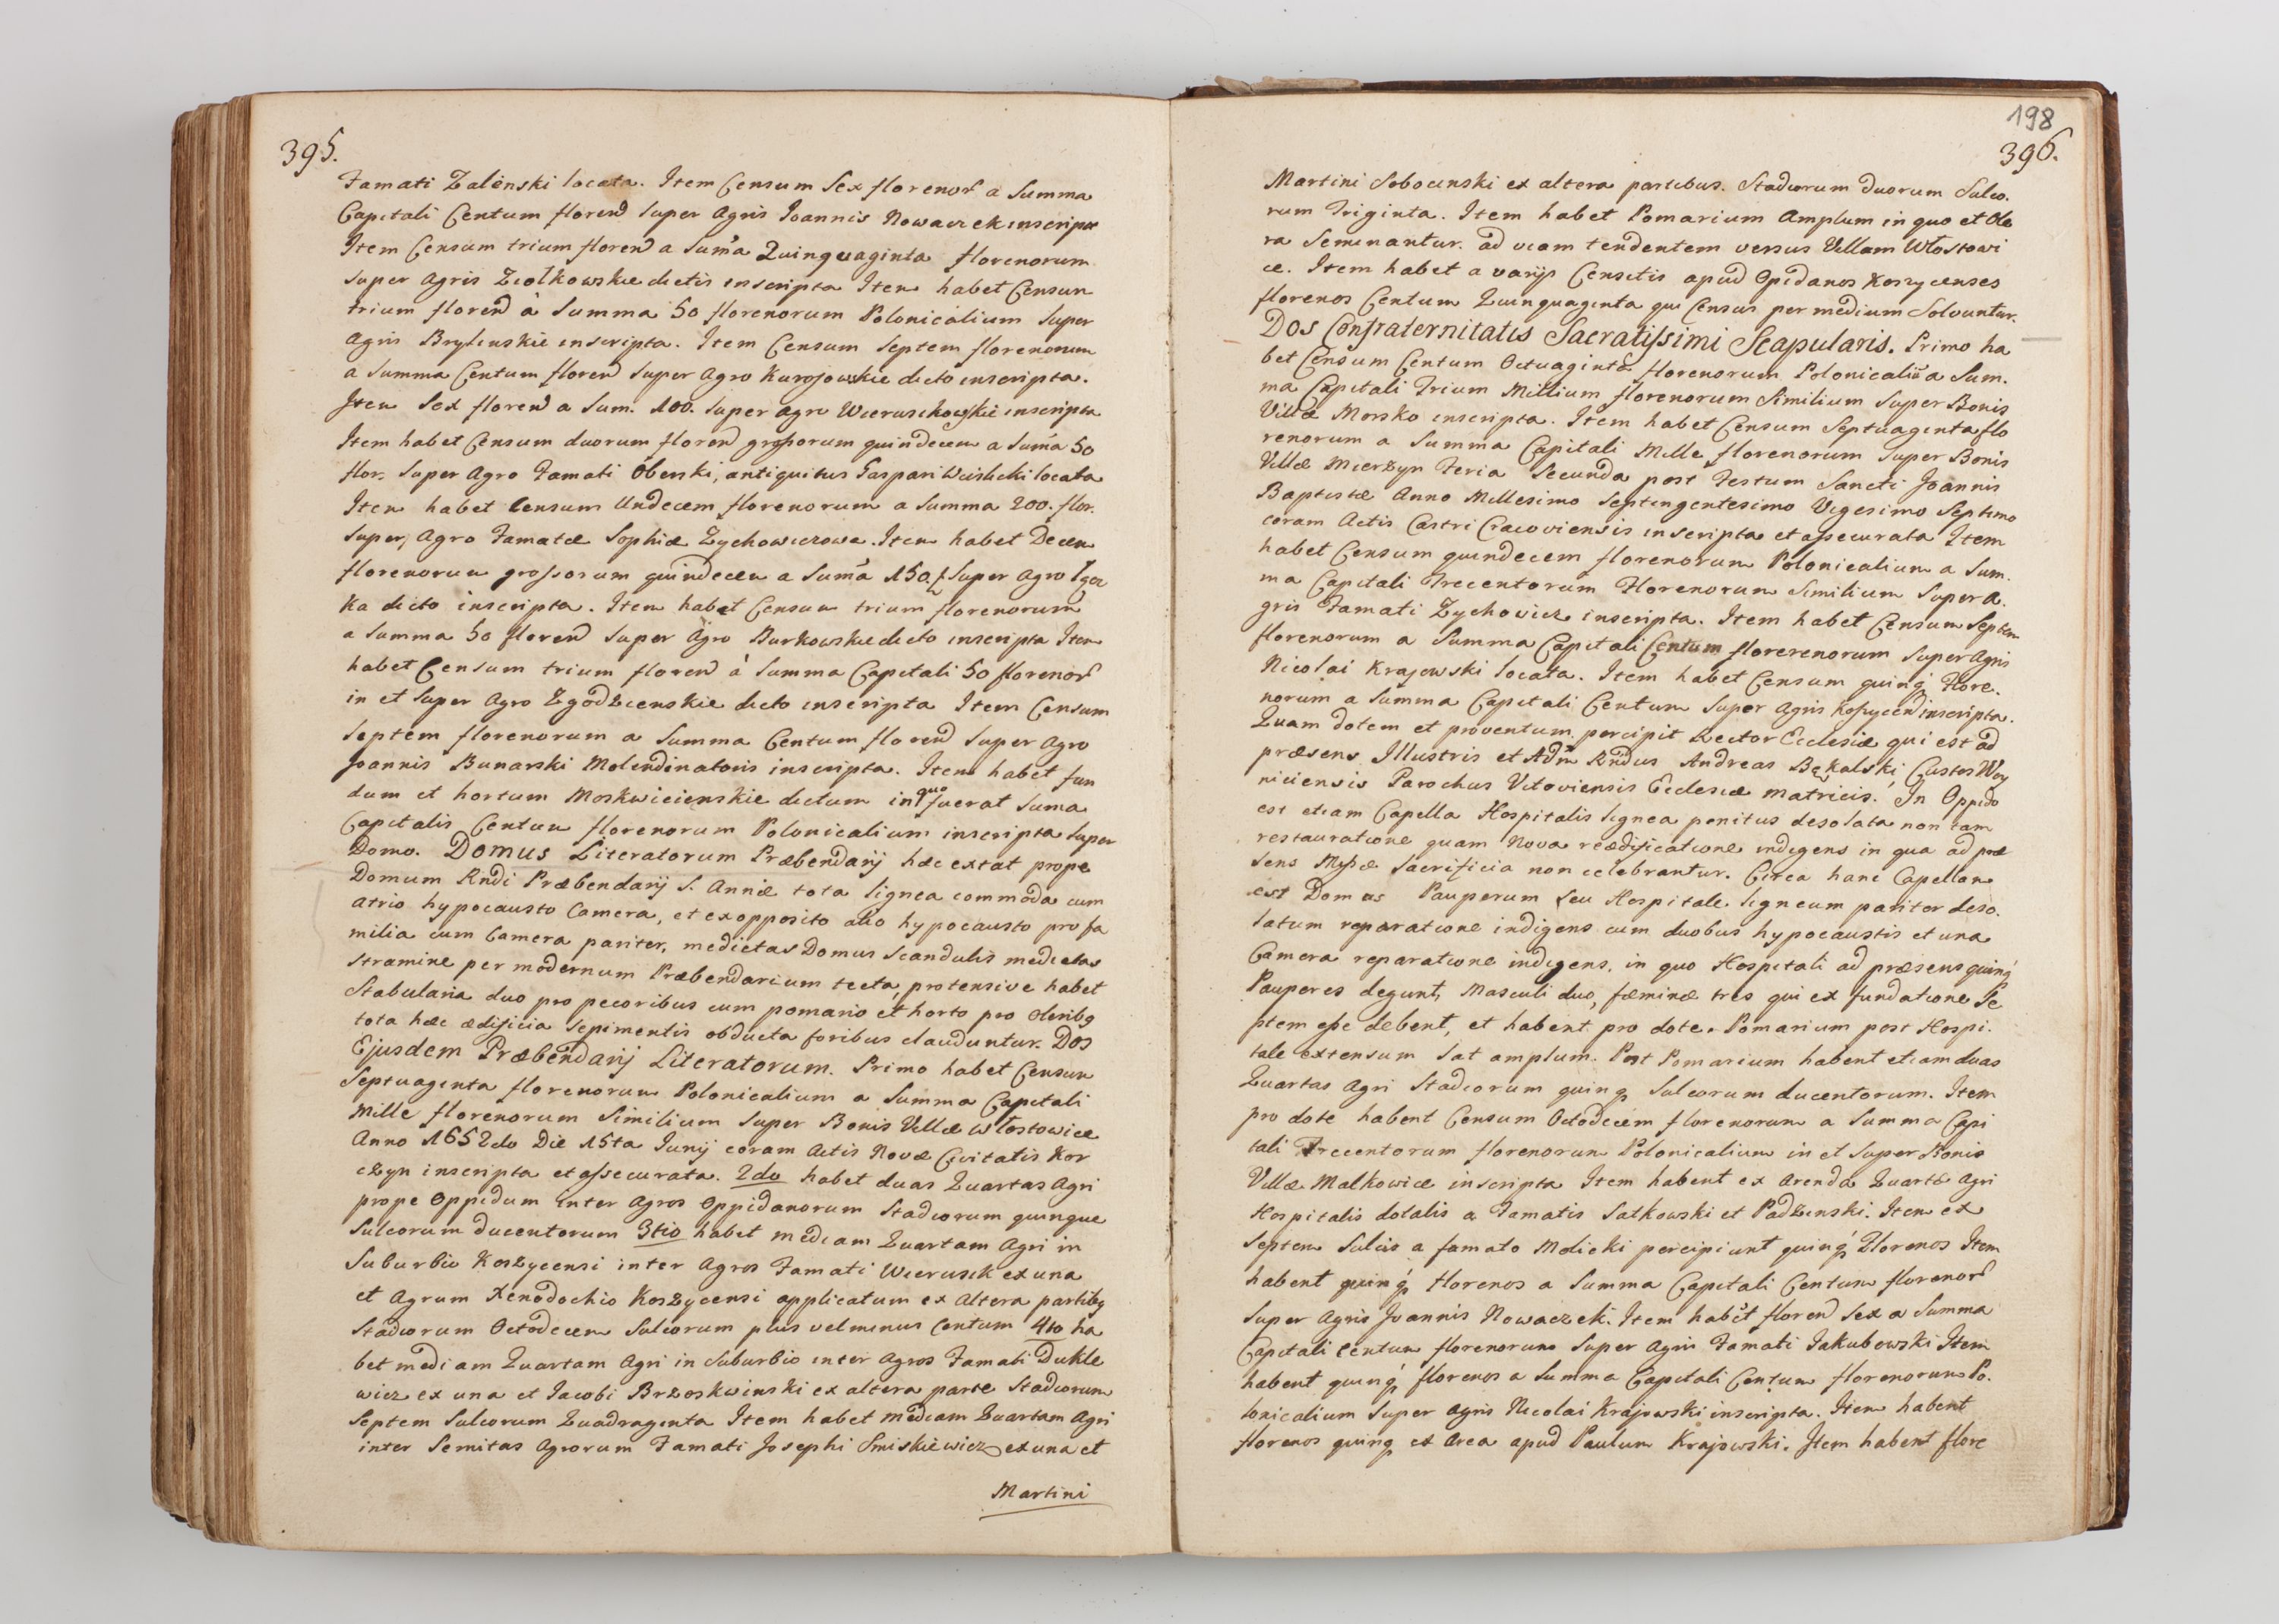 395.
Famati Zalenski locata. Item Censum Sex florenor a Summa
Capitali Centum floren super Agris Joannis Nowaczek inscript
Item Censum trium floren a Suma Quinquaginta florenorum
super Agris Ziolkowskie dictis inscripta Item habet Censum
trium floren à Summa 50 florenorum Polonicalium super
Agris Brylinskie inscripta. Item Censum Septem florenorum
a Summa Centum floren super Agro Kurojowskie dicto inscripta.
Item Sex floren a Sum. 100. super agro Wierusikowskie inscripta
Item habet Censum duorum floren grossorum quindecem a Suma 50
flor. super Agro Famati Oberski, antiquitus Gaspari Wislicki locata
Item habet Censum Undecem florenorum a Summa 200. flor.
super Agro Famatæ Sophiæ Zychowiczowa. Item habet Decem
florenorum grossorum quindecem a Suma 150. f super Agro
ka dicto inscripta. Item habet Censum trium florenorum
a Summa 50 floren super Agro Burkowskie dicto inscripta Item
habet Censum trium floren à Summa Capitali 50 florenor
in et super Agro Zgodzienskie dicto inscripta Item Censum
Septem florenorum a Summa Centum floren super Agro
Joannis Bunarski Molendinatoris inscripta. Item habet fun
dum et hortum Moskwicienskie dictum in quo fuerat Suma
Capitalis Centum florenorum Polonicalium inscripta super
Domo. Domus Literatorum Præbendarij hæc extat prope
Domum Rndi Præbendarij S. Annæ tota lignea commoda cum
atrio hypocausto Camera, et ex opposito alio hypocausto pro fa
milia cum Camera pariter, medietas Domus Scandulis medietas
stramine per modernum Præbendarium tecta, protensive habet
Stabularia duo pro pecoribus cum pomario et horto pro oleribg
tota hæc ædificia sepimentis obducta foribus clauduntur. Dos
Ejusdem Præbendarij Literatorum. Primo habet Censum
Septuaginta florenorum Polonicalium a Summa Capitali
Mille florenorum Similium super Bonis Villæ Włostowice
Anno 1652do Die 15ta Junij coram Actis Novæ Civitatis Kor
czyn inscripta et assecurata. 2do habet duas Quartas Agri
prope Oppidum inter Agros Oppidanorum Stadiorum quinque
Sulcorum ducentorum 3tio habet mediam Quartam Agri in
Suburbio Koszycensi inter Agros Famati Wierusik ex una
et Agrum Xenodochio Koszycensi applicatum ex Altera partibg
Stadiorum Octodecem Sulcorum plus vel minus Centum 4to ha
bet mediam Quartam Agri in Suburbio inter Agros Famati Dukle
wicz ex una et Jacobi Brzoskwinski ex altera parte Stadiorum
Septem Sulcorum Quadraginta Item habet mediam Quartam Agri
inter Semitas Agrorum Famati Josephi Smiskiewicz ex una et
Martini
198
396.
Martini Sobocinski ex altera partibus. Stadiorum duorum Sulco.
rum Triginta. Item habet Pomarium Amplum in quo et Ole
ra Seminantur. ad viam tendentem versus Villam Włostowi
ce. Item habet a varijs Censitis apud Opidanos Koszycenses
florenos Centum Quinquaginta qui Census per medium Solvuntur.
Dos Confraternitatis Sacratissimi Scapularis. Primo ha
bet Censum Centum Octuaginta florenorum Polonicaliu a Sum.
ma Capitali Trium Millium florenorum Similium super Bonis
Villæ Morsko inscripta. Item habet Censum Septuaginta flo
renorum a Summa Capitali Mille florenorum super Bonis
Villæ Mierzyn Feria Secunda post Festum Sancti Joannis
Baptistæ Anno Millesimo Septingentesimo Vigesimo Septimo
coram Actis Castri Cracoviensis inscripta et assecurata Item
habet Censum quindecem florenorum Polonicalium a Sum.
ma Capitali Trecentorum Florenorum Similium super A.
gris Famati Zychowicz inscripta. Item habet Censum Septem
florenorum a Summa Capitali Centum florerenorum super Agris
Nicolai Krajowski locata. Item habet Censum quinq Flore.
norum a Summa Capitali Centum super Agris Koszycen inscripta.
Quam dotem et proventum percipit Rector Ecclesiæ qui est ad
præsens Illustris et Adm Rndus Andreas Bękalski Custos Woy
niciensis Parochus Vitoviensis Ecclesiæ matricis. In Oppido
est etiam Capella Hospitalis lignea penitus desolata non tam
restauratione quam Nova reædificatione indigens in qua ad præ
sens Missæ sacrificia non celebrantur. Circa hanc Capellam
est Domus Pauperum seu Hospitale ligneum pariter deso.
latum reparatione indigens cum duobus hypocaustis et una
Camera reparatione indigens, in quo Hospitali ad præsens quinq
Pauperes degunt, Masculi duo, fæminæ tres qui ex fundatione Se
ptem esse debent, et habent pro dote. Pomarium post Hospi.
tale extensum sat amplum. Post Pomarium habent etiam duas
Quartas Agri Stadiorum quinq Sulcorum ducentorum. Item
pro dote habent Censum Octodecem florenorum a Summa Capi
tali Trecentorum florenorum Polonicalium in et super Bonis
Villæ Malkowice inscripta Item habent ex Arenda Quartæ Agri
Hospitalis dotalis a Famatis Satkowski et Padzinski. Item ex
Septem Sulcis a famato Molicki percipiunt quinq Florenos Item
habent quinq florenos a Summa Capitali Centum florenor
super Agris Joannis Nowaczek. Item habet floren Sex a Summa
Capitali Centum florenorum super Agris Famati Jakubowski Item
habent quinq florenos a Summa Capitali Centum florenorum Po.
lonicalium super Agris Nicolai Krajowski inscripta. Item habent
florenos quinq ex Area apud Paulum Krajowski. Item habent flore